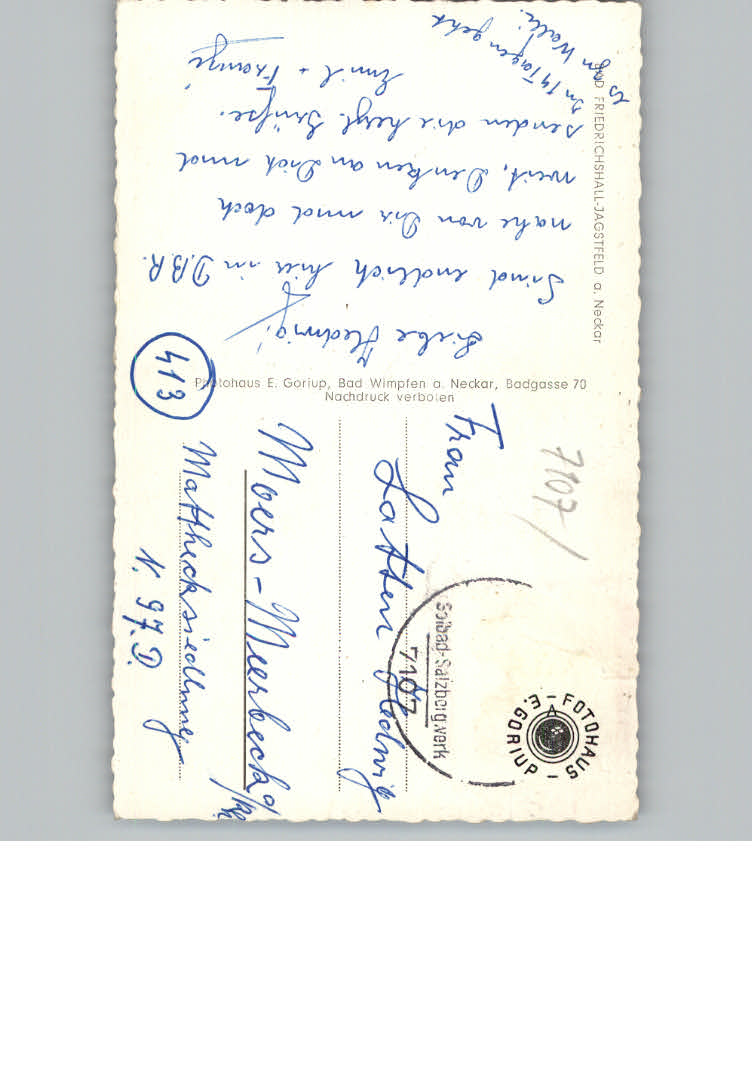 BAD FRIEDRICHSHALL-JAGSTFELD a. Neckar
Liebe Hedwig!
Sind endlich hier in D.B.R.
nahe von Dir und doch
weit. Denken an Dich und
senden die herzl. Grüße.
Emil +
In 14 Tagen geht
es
413
Photohaus E. Goriup, Bad Wimpfen a. Neckar, Badgasse 70
Nachdruck verboten
7107/
Frau
Hedwig
Moers-Meerbeck
N. 97. D.
Solbad-Salzbergwerk
7107
FOTOHAUS - E. GORIUP -